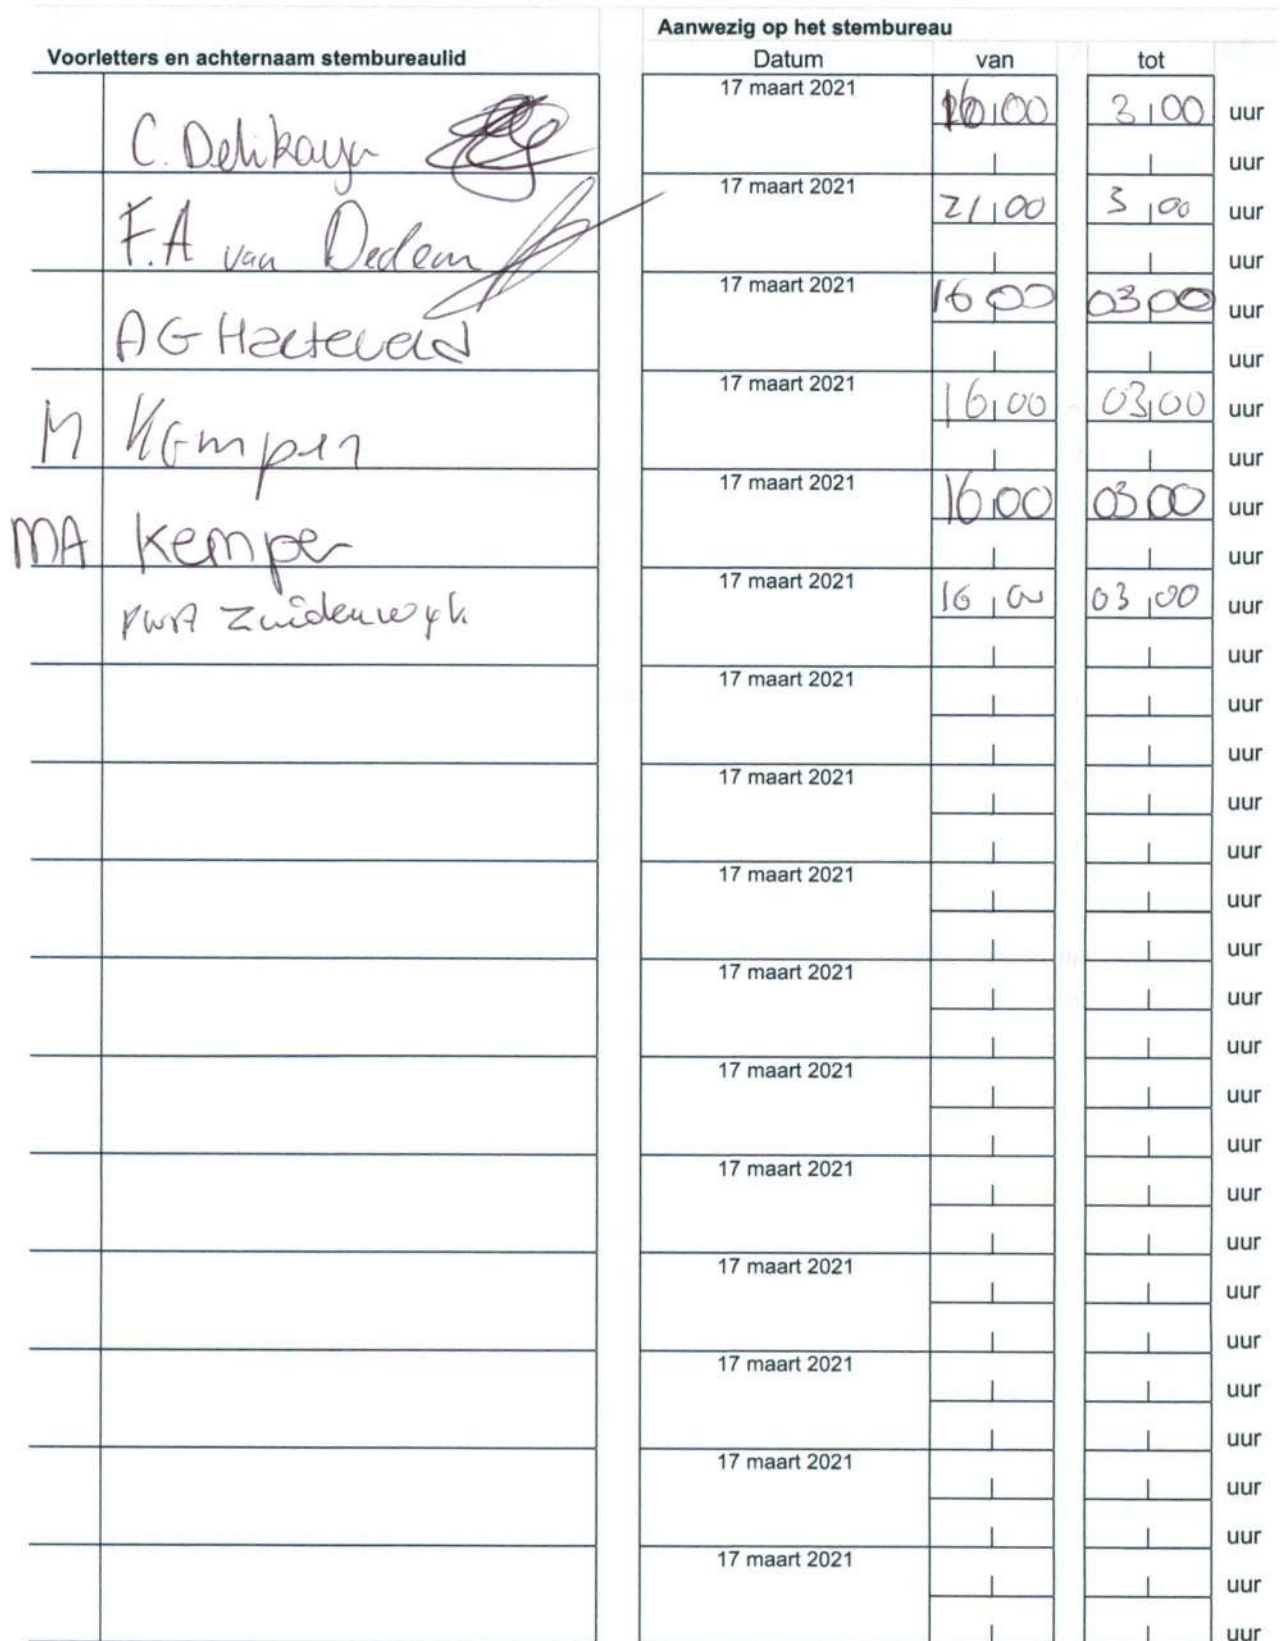 Aanwezig op het stembureau
Voorletters en achternaam stembureaulid Datum van tot
17 maart 2021 16:00 3:00 uur
C. Delikaya uur
17 maart 2021 21:00 3:00 uur
F.A van Dedem uur
17 maart 2021 16 00 03 00 uur
AG Harteveld uur
17 maart 2021 16:00 03:00 uur
M Kemper uur
17 maart 2021 16:00 03 00 uur
MA Kemper uur
17 maart 2021 16:00 03:00 uur
PWA Zuiderwyk uur
17 maart 2021 uur
uur
17 maart 2021 uur
uur
17 maart 2021 uur
uur
17 maart 2021 uur
uur
17 maart 2021 uur
uur
17 maart 2021 uur
uur
17 maart 2021 uur
uur
17 maart 2021 uur
uur
17 maart 2021 uur
uur
17 maart 2021 uur
uur